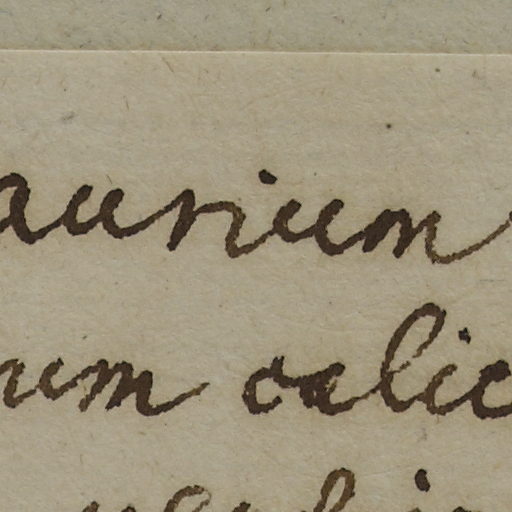 aurium
num calic